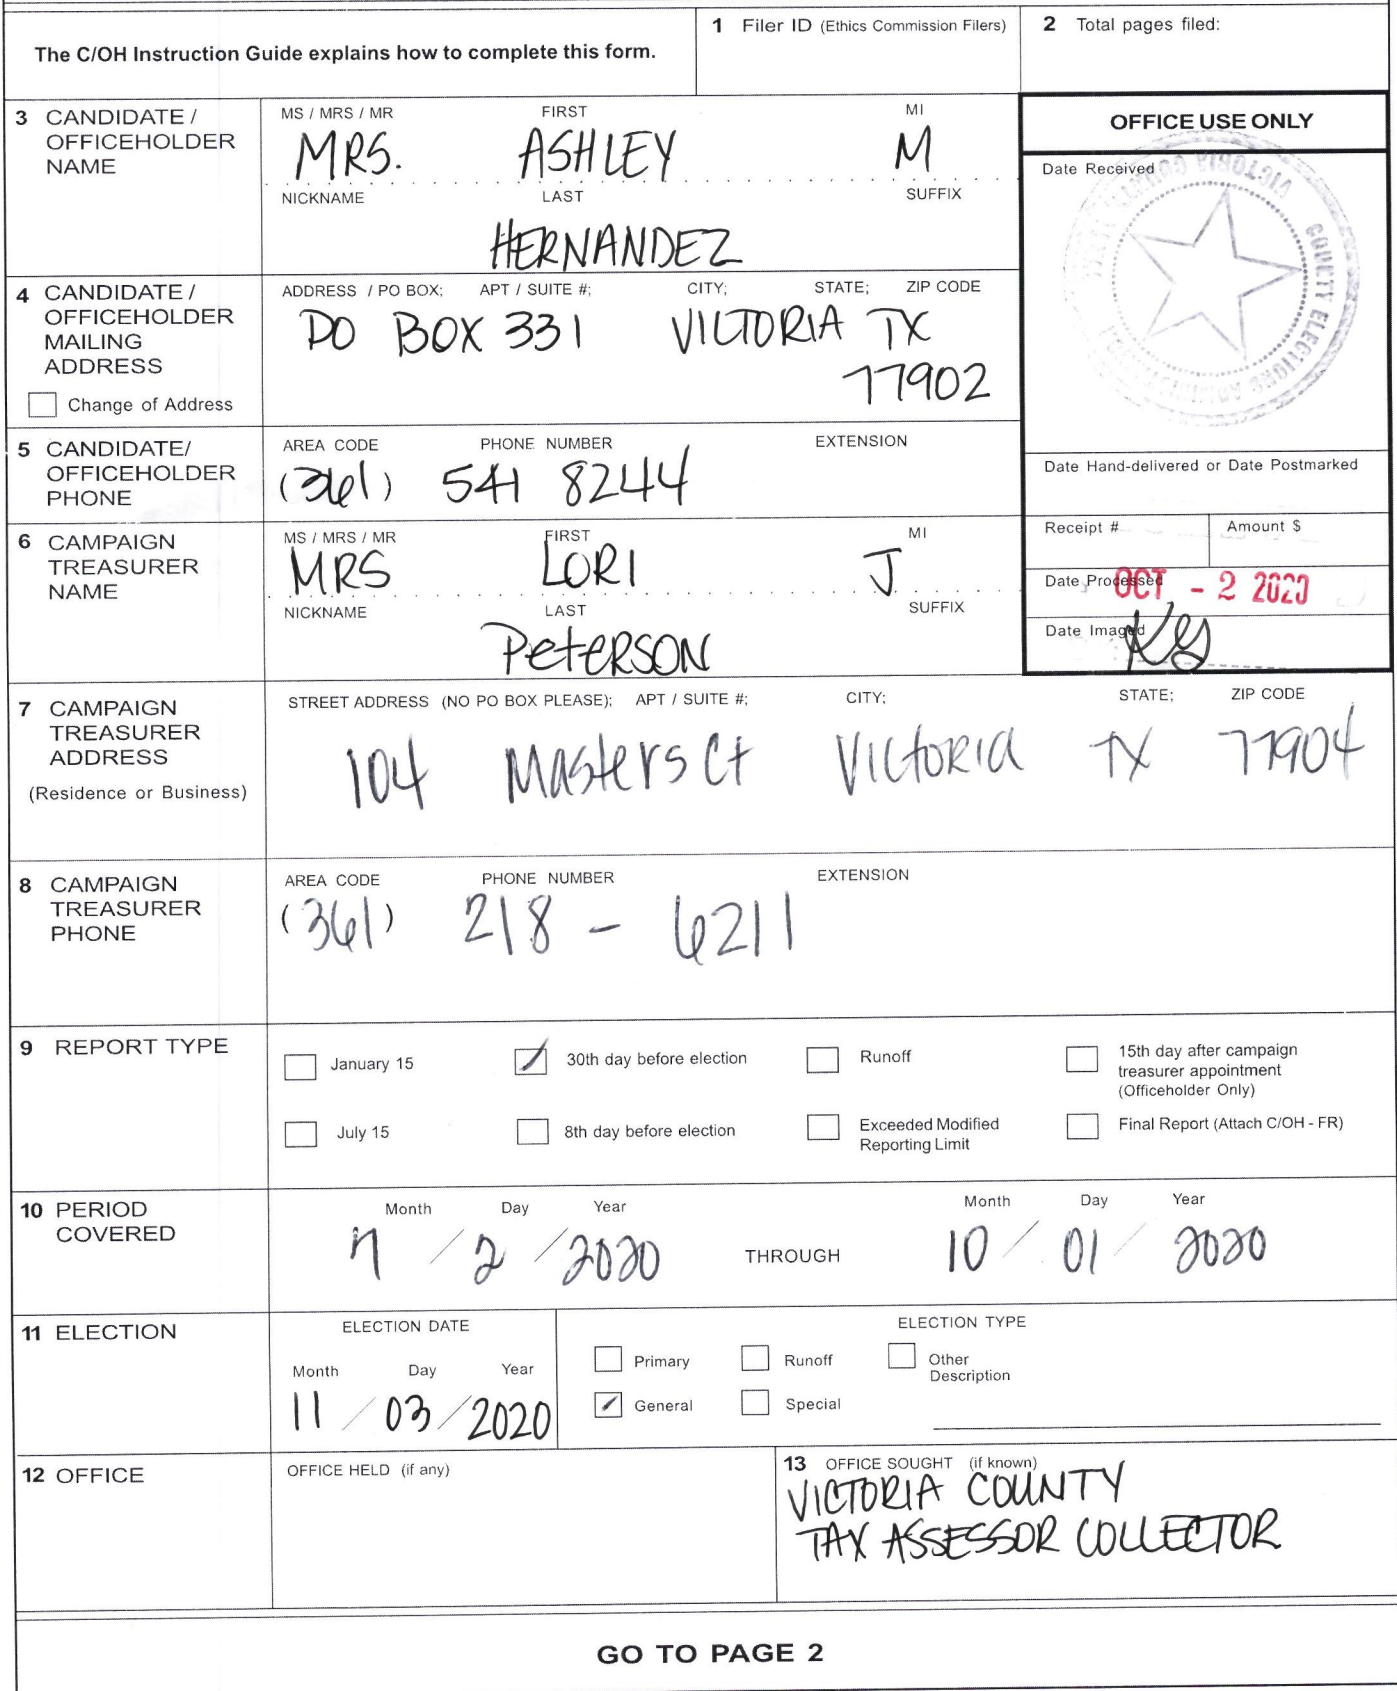 The C/OH Instruction Guide explains how to complete this form.
1 Filer ID (Ethics Commission Filers)
2 Total pages filed:
3 CANDIDATE /
OFFICEHOLDER
NAME
MS / MRS / MR FIRST MI
MRS. ASHLEY M
NICKNAME LAST SUFFIX
HERNANDEZ
OFFICE USE ONLY
Date Received
VICTORIA COUNTY
COUNTY ELECTIONS
4 CANDIDATE /
OFFICEHOLDER
MAILING
ADDRESS
Change of Address
ADDRESS / PO BOX; APT / SUITE #; CITY; STATE; ZIP CODE
PO BOX 331 VICTORIA TX
77902
5 CANDIDATE/
OFFICEHOLDER
PHONE
AREA CODE PHONE NUMBER EXTENSION
(361) 541 8244
Date Hand-delivered or Date Postmarked
Receipt # Amount $
Date Processed OCT - 2 2020
Date Imaged
6 CAMPAIGN
TREASURER
NAME
MS / MRS / MR FIRST MI
MRS LORI J
NICKNAME LAST SUFFIX
PETERSON
7 CAMPAIGN
TREASURER
ADDRESS
(Residence or Business)
STREET ADDRESS (NO PO BOX PLEASE); APT / SUITE #; CITY; STATE; ZIP CODE
104 Masters Ct Victoria TX 77904
8 CAMPAIGN
TREASURER
PHONE
AREA CODE PHONE NUMBER EXTENSION
(361) 218 - 6211
9 REPORT TYPE
January 15
30th day before election
Runoff
15th day after campaign
treasurer appointment
(Officeholder Only)
July 15
8th day before election
Exceeded Modified
Reporting Limit
Final Report (Attach C/OH - FR)
10 PERIOD
COVERED
Month Day Year
7 / 2 / 2020
THROUGH
Month Day Year
10 / 01 / 2020
11 ELECTION
ELECTION DATE
Month Day Year
11 / 03 / 2020
ELECTION TYPE
Primary Runoff Other
Description
General Special
12 OFFICE
OFFICE HELD (if any)
13 OFFICE SOUGHT (if known)
VICTORIA COUNTY
TAX ASSESSOR COLLECTOR
GO TO PAGE 2